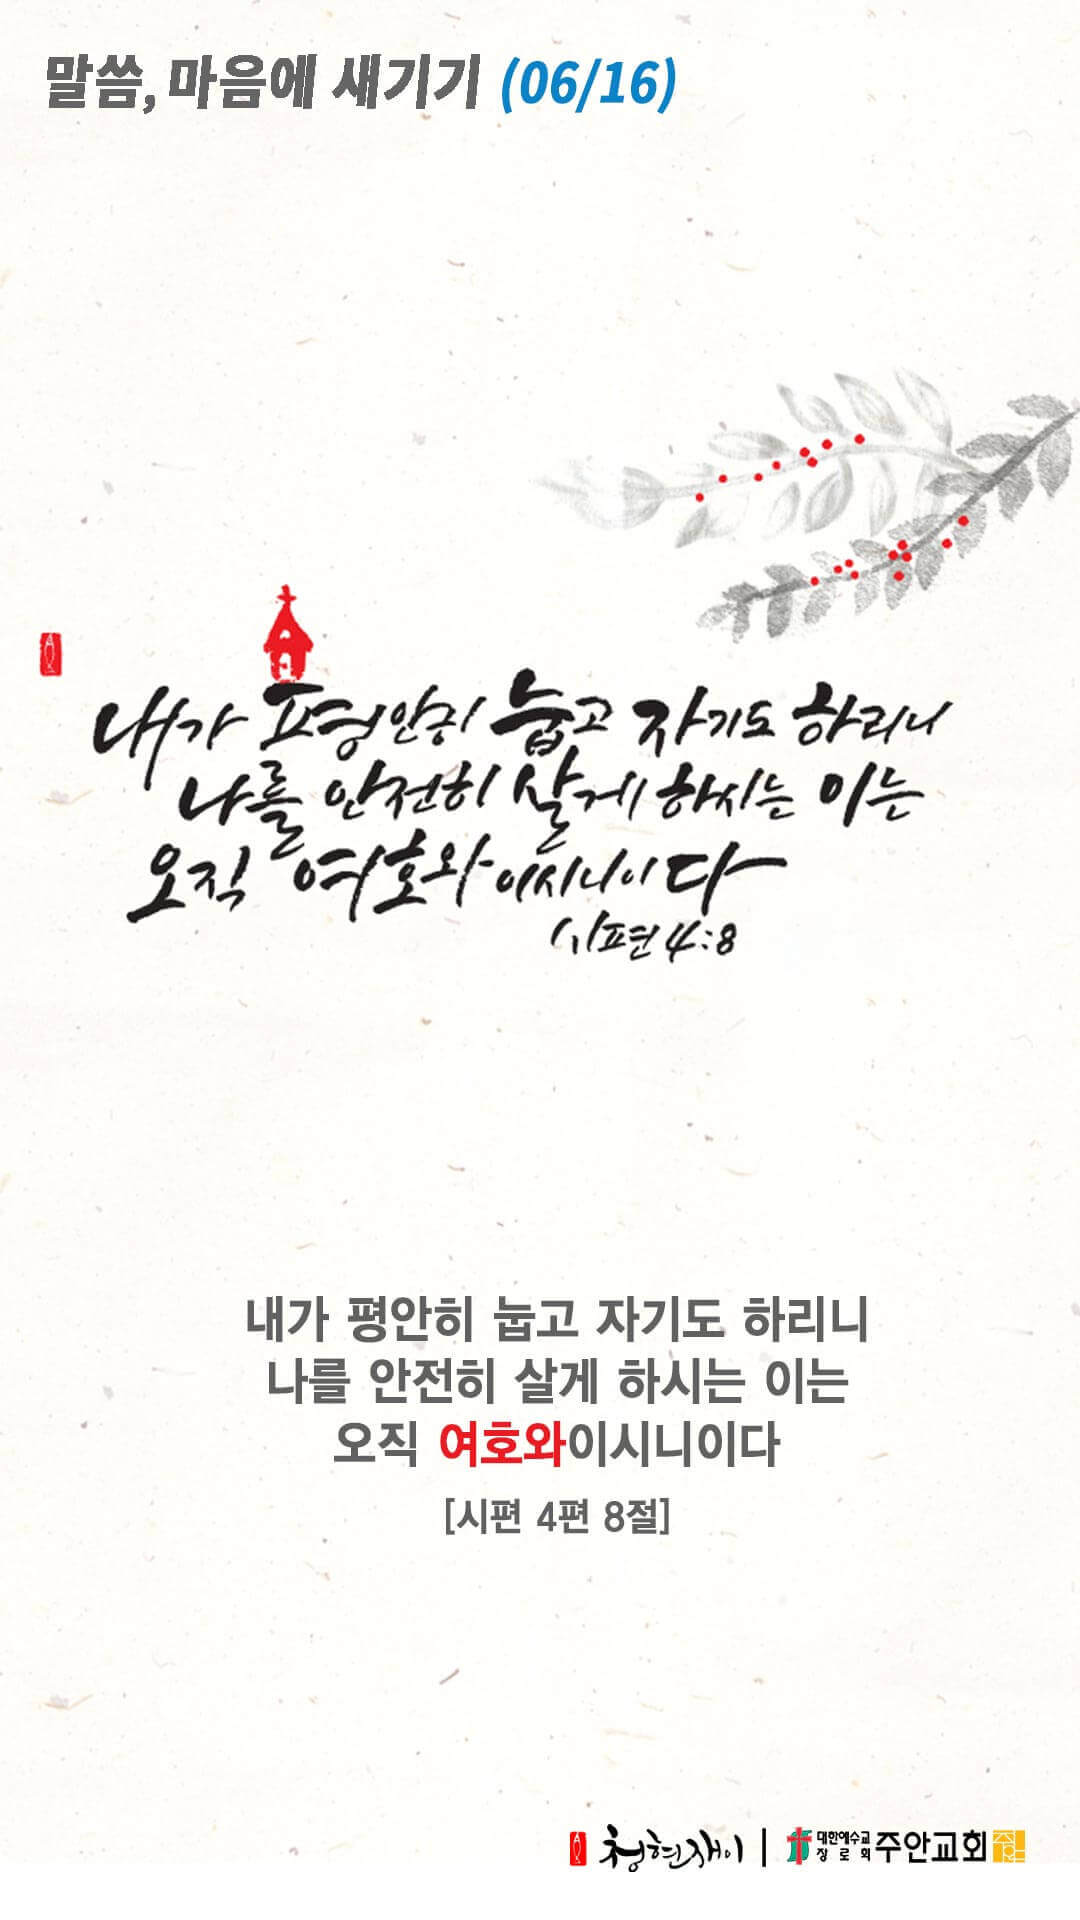 말씀, 마음에 새기기 (06/16)
내가 평안히 눕고 자기도 하리니
나를 안전히 살게 하시는 이는
오직 여호와이시니이다
시편 4:8
내가 평안히 눕고 자기도 하리니
나를 안전히 살게 하시는 이는
오직 여호와이시니이다
[시편 4편 8절]
청현재이 | 대한예수교 장로회 주안교회